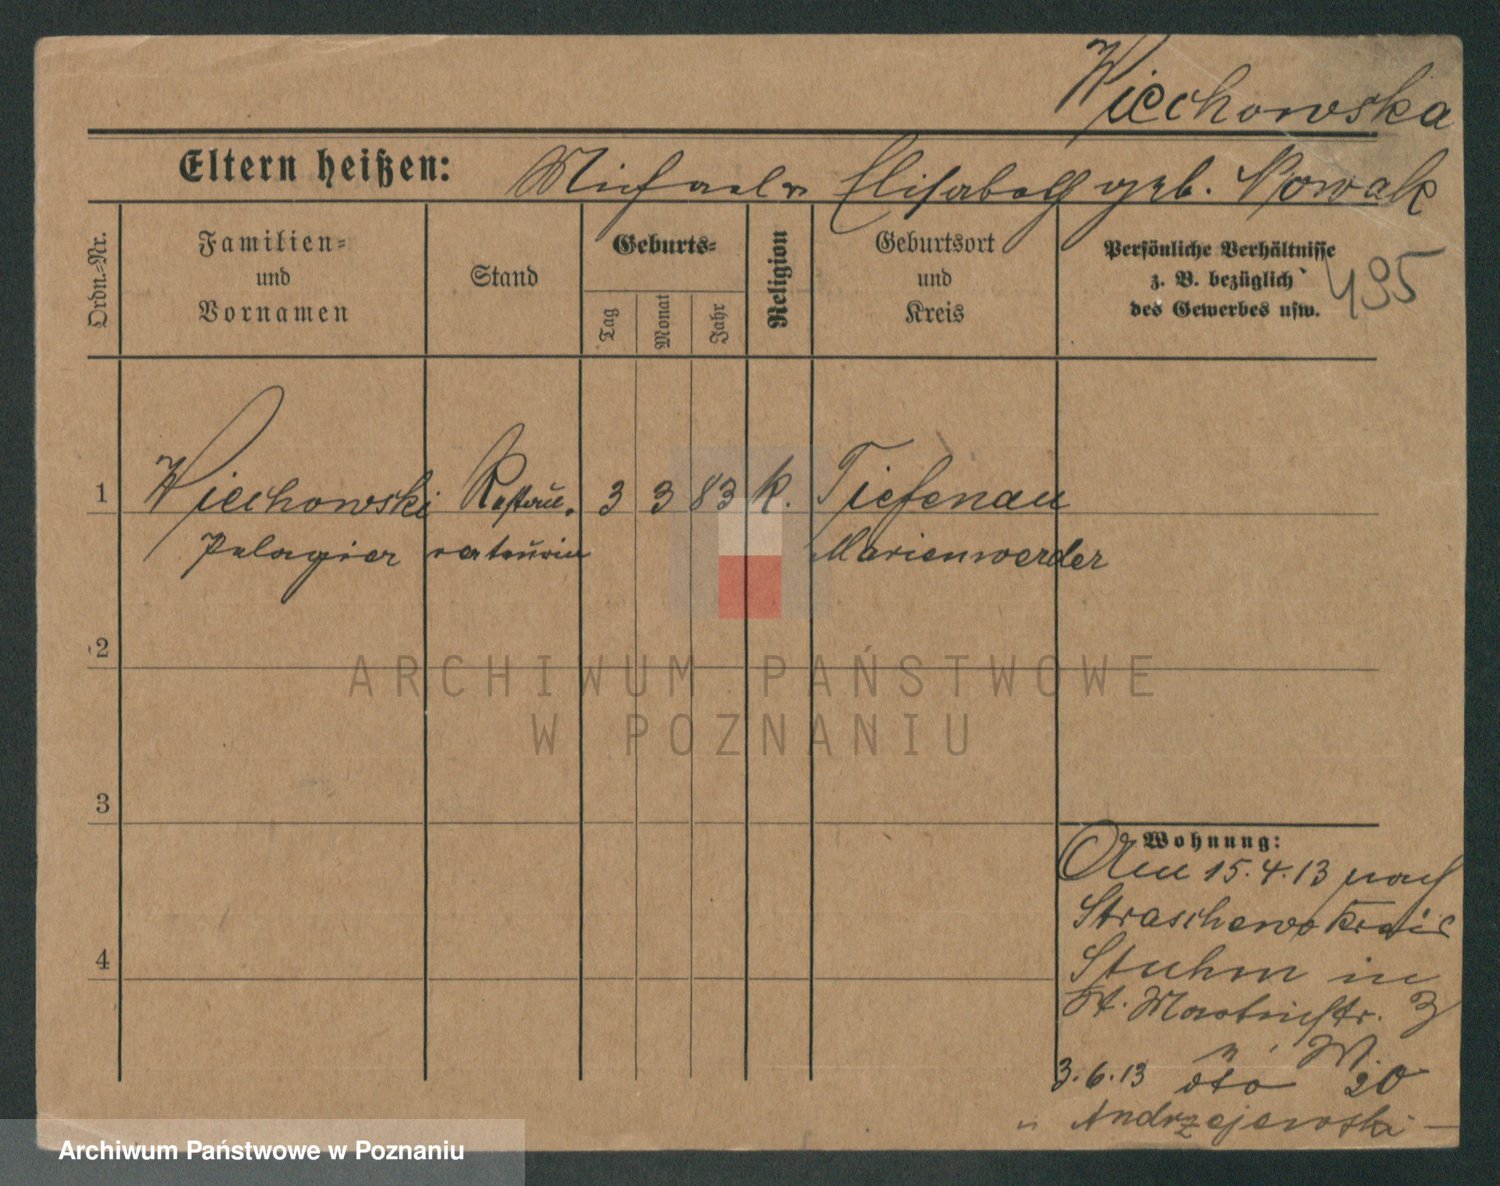 Wiechowska
Eltern heißen: Michael u Elisabeth geb. Nowak
Ordn.=Nr.
Familien=
und
Vornamen
Stand
Geburts=
Tag
Monat
Jahr
Religion
Geburtsort
und
Kreis
Persönliche Verhältnisse
z. B. bezüglich
des Gewerbes usw.
495
1 Wiechowski Restau- 3 3 83 k. Tiefenau
Pelagia rateurin Marienwerder
2
3
4
Wohnung:
Am 15.4.13 nach
Straschewo Kreis
Stuhm in
St. Martinstr. 3
n. W.
3.6.13 dto 20
Andrzejewski
ARCHIWUM PAŃSTWOWE
W POZNANIU
Archiwum Państwowe w Poznaniu